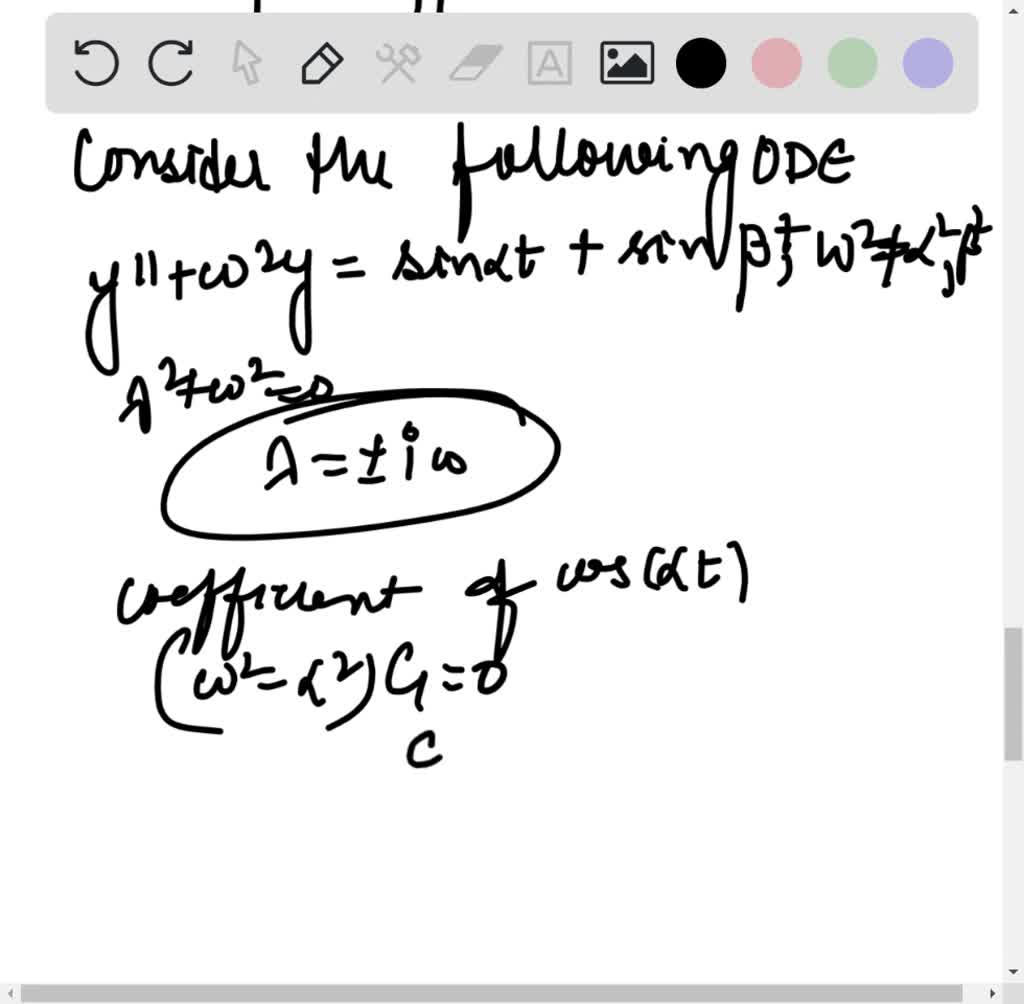 Consider the following ODE
y'' + ω²y = sinαt + sinβt; ω² ≠ α², β²
λ² + ω² = 0
λ = ± i ω
coefficient of cos(αt)
(ω² - α²) C₁ = 0
C